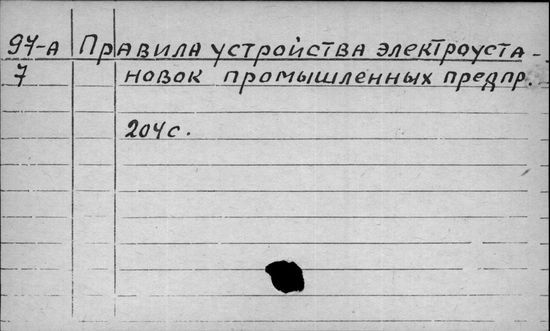 97-А Правила устройства электроуста-
7 новок промышленных предпр.
204 с.